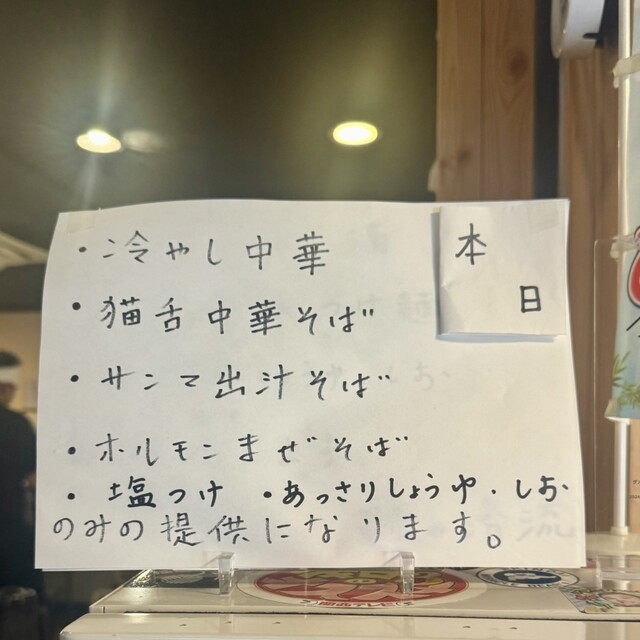 本日
・冷やし中華
・猫舌中華そば
・サンマ出汁そば
・ホルモンまぜそば
・塩つけ ・あっさりしょうゆ・しお
のみの提供になります。
関西テレビ